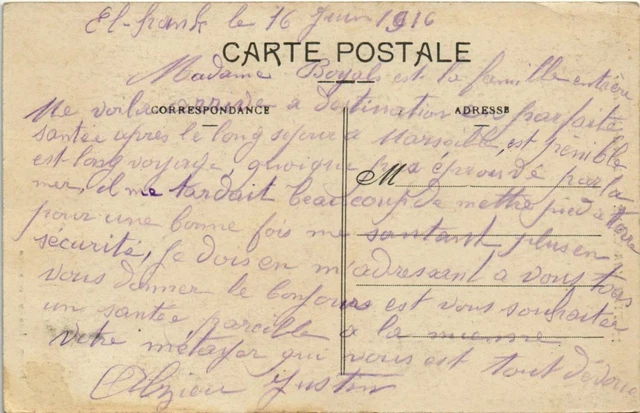 le 16 Juin 1916
CARTE POSTALE
Madame Boyals est la famille entière
CORRESPONDANCE
ADRESSE
Me voila arrivée a destination en parfaite
santée après le long sejour a Marseille, est pénible
est long voyage, quoique pas éprouvé par la
M
mer, il me tardait beaucoup de mettre pied a terre
pour une bonne fois me santant plus en
sécurité, Je dois en m'adressant a vous tous
vous donner le bonjour est vous souhaiter
un santée pareille a la mienne
Votre métayer qui vous est tout dévoué
Justin